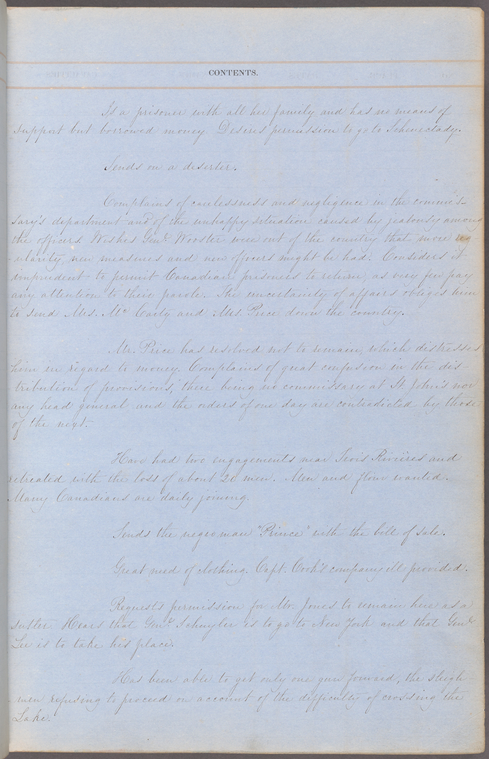 CONTENTS.
Is a prisoner with all his family and has no means of
support but borrowed money Desires permission to go to Schenectady.
Sends in a deserter.
Complains of carelessness and negligence in the commis-
sary's department and of the unhappy situation caused by jealousy among
the officers Wishes Genl. Wooster were out of the country that more
new measures and new officers might be had. Considers it
imprudent to permit Canadian prisoners to return, as very few pay
any attention to their parole. The uncertainty of affairs obliges him
to send Mrs. Mc Carty and Mrs. Price down the country.
Mr. Price has resolved not to remain, which distresses
him in regard to money. Complains of great confusion in the dis
tribution of provisions, there being no commissary at St. John's nor
any head general and the orders of one day are contradicted by those
of the next.
Have had two engagements near Trois Rivieres and
retreated with the loss of about 20 men. Men and flour wanted.
Many Canadians are daily joining.
Sends the negroman "Prince" with the bill of sale.
Great need of clothing. Capt. Cook's company ill provided.
Requests permission for Mr. Jones to remain here as a
sutler Hears that Genl. Schuyler is to go to New York and that Genl.
Lee is to take his place.
Has been able to get only one gun forward, the sleigh
men refusing to proceed on account of the difficulty of crossing the
Lake.